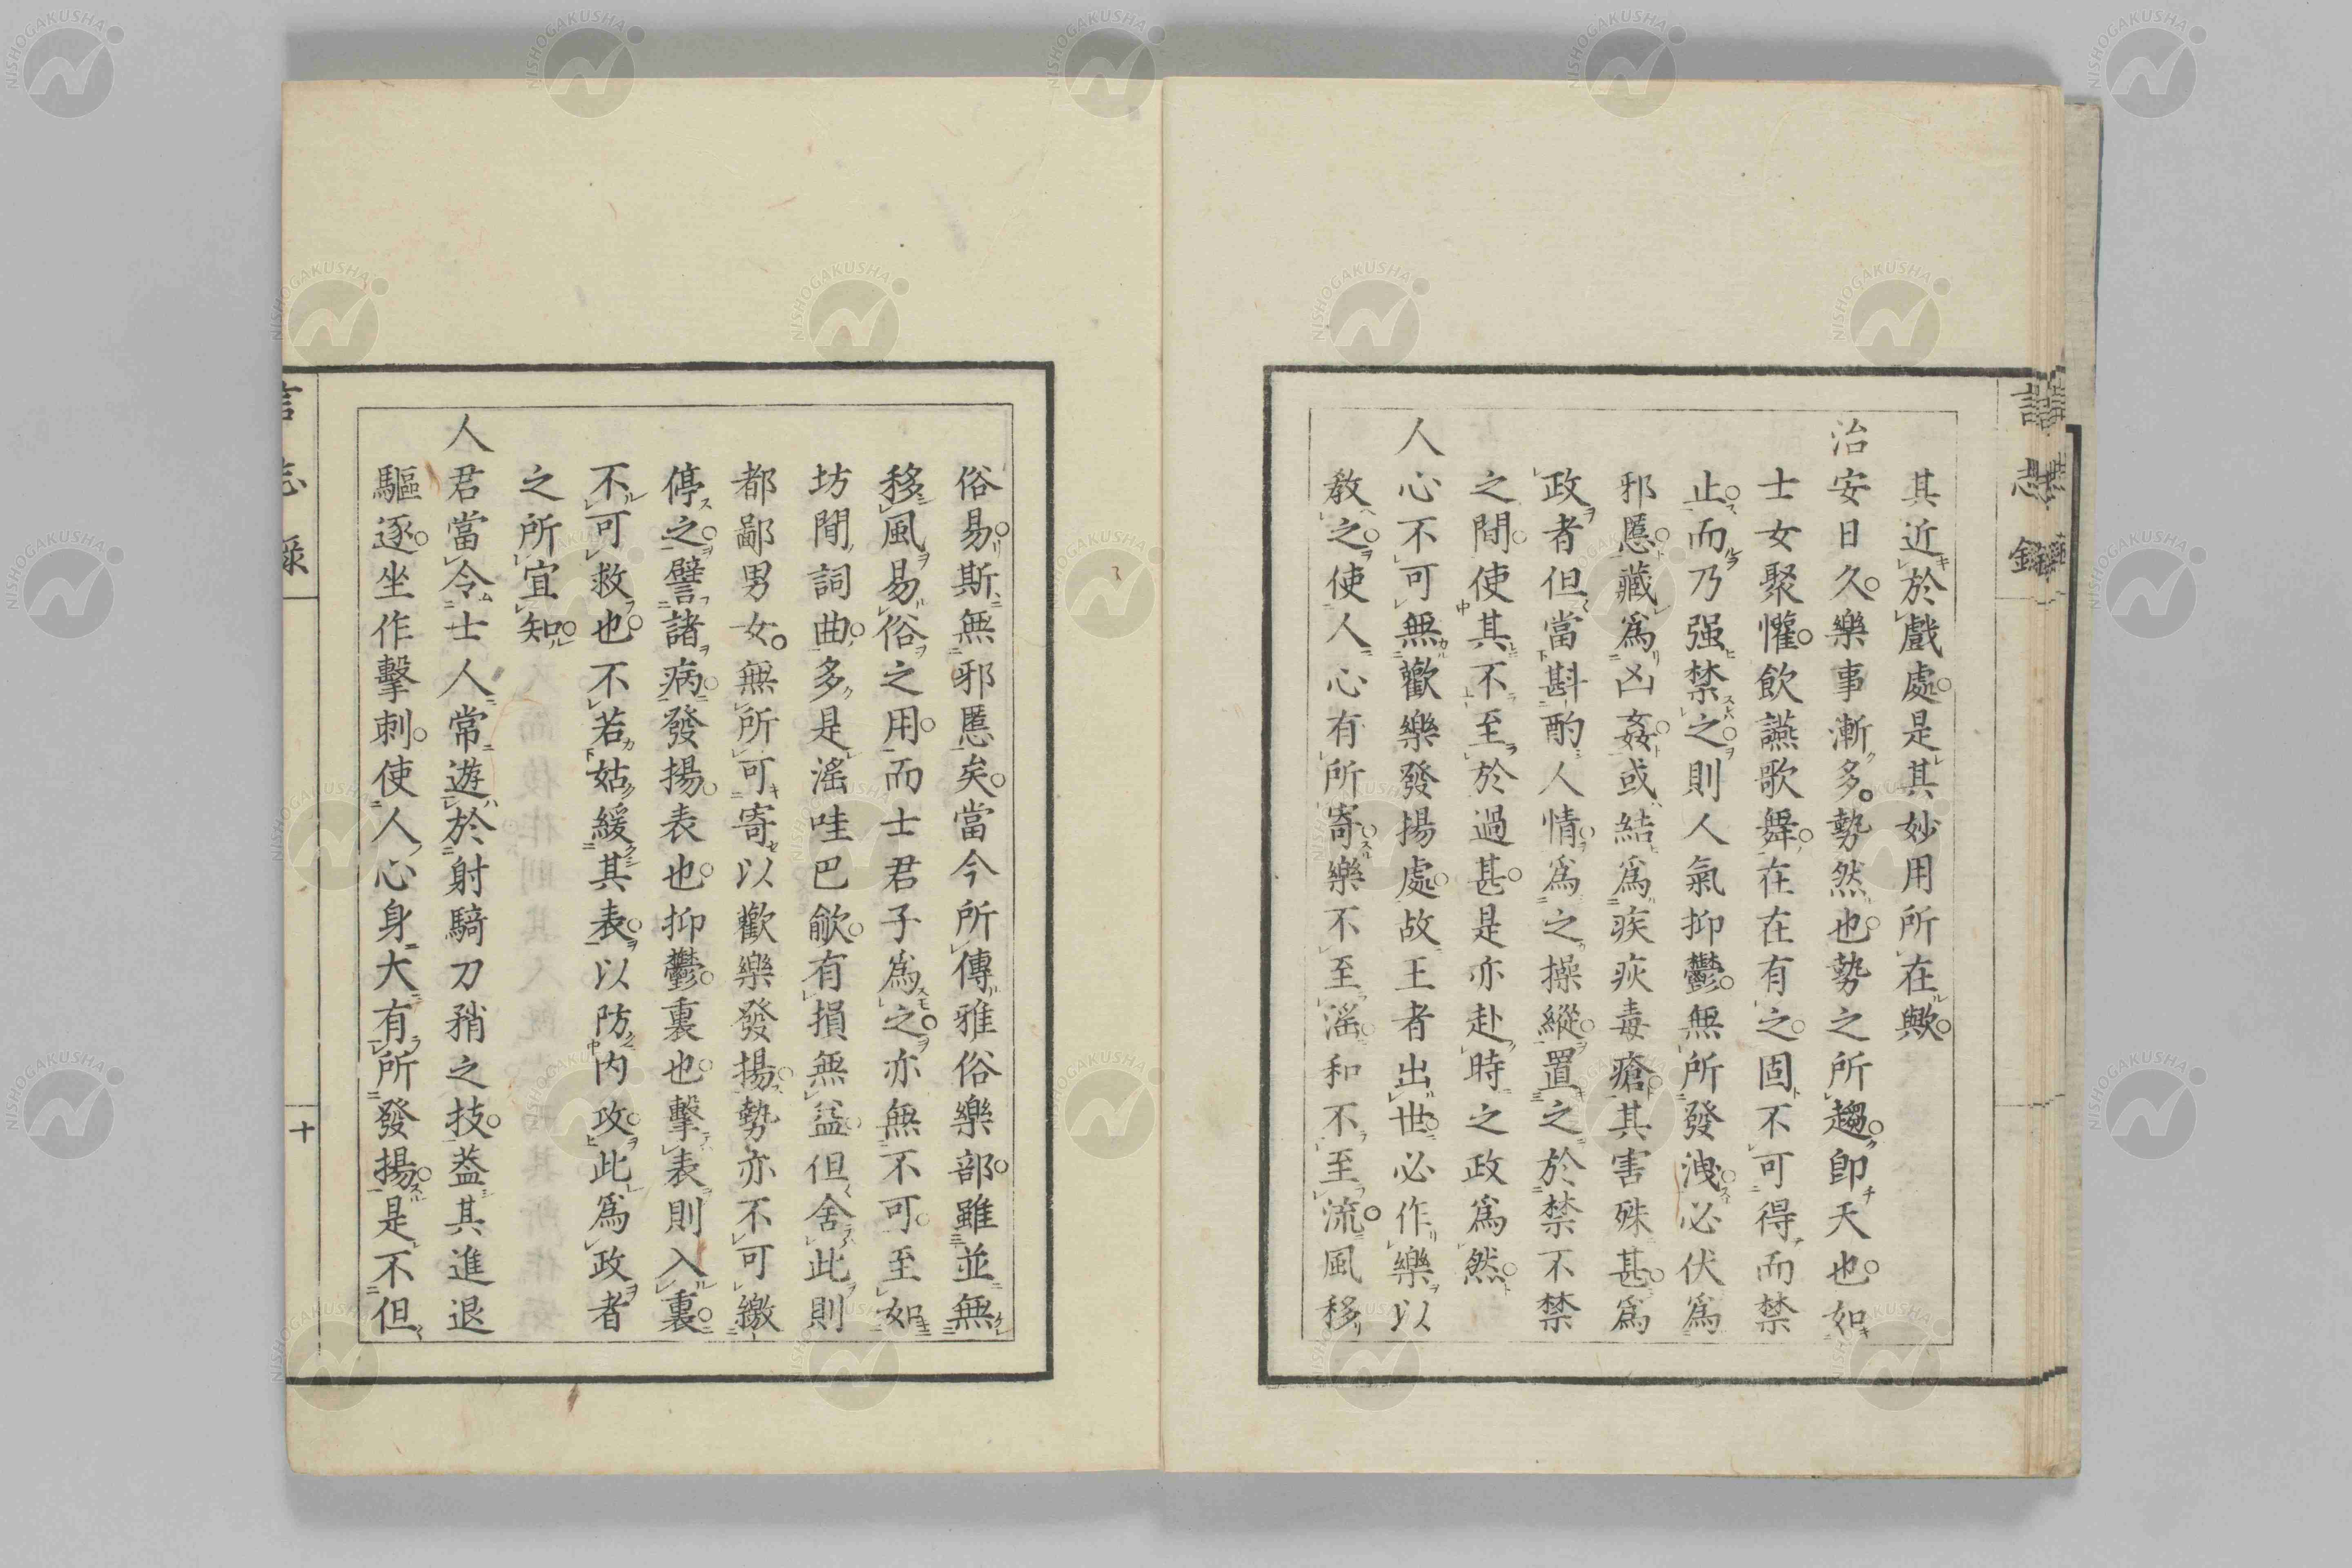 言志録
其近於戲處是其妙用所在歟
治安日久樂事漸多勢然也勢之所趨卽天也如
士女聚懽飲讌歌舞在在有之固不可得而禁
止而乃强禁之則人氣抑鬱無所發洩必伏爲
邪慝藏爲凶姦或結爲疾疢毒瘡其害殊甚爲
政者但當斟酌人情爲之操縱置之於禁不禁
之間使其不至於過甚是亦赴時之政爲然
人心不可無歡樂發揚處故王者出世必作樂以
教之使人心有所寄樂不至淫和不至流風移
俗易斯無邪慝矣當今所傳雅俗樂部雖並無
移風易俗之用而士君子爲之亦無不可至如
坊間詞曲多是淫哇巴歈有損無益但舍此則
都鄙男女無所可寄以歡樂發揚勢亦不可繳
停之譬諸病發揚表也抑鬱裏也擊表則入裏
不可救也不若姑緩其表以防内攻此爲政者
之所宜知
人君當令士人常遊於射騎刀矟之技葢其進退
驅逐坐作擊刺使人心身大有所發揚是不但
言志录
十
NISHOGAKUSHA